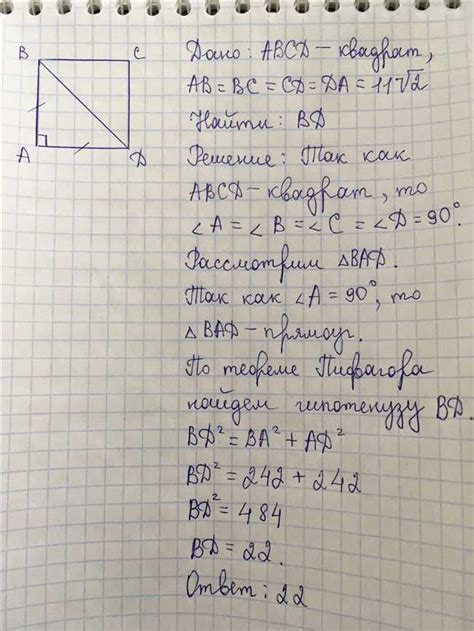 B C
A D
Дано: ABCD – квадрат,
AB = BC = CD = DA = 11√2
Найти: BD
Решение: Так как
ABCD – квадрат, то
∠A = ∠B = ∠C = ∠D = 90°.
Рассмотрим △BAD.
Так как ∠A = 90°, то
△BAD – прямоуг.
По теореме Пифагора
найдем гипотенузу BD.
BD² = BA² + AD²
BD² = 242 + 242
BD² = 484
BD = 22.
Ответ: 22